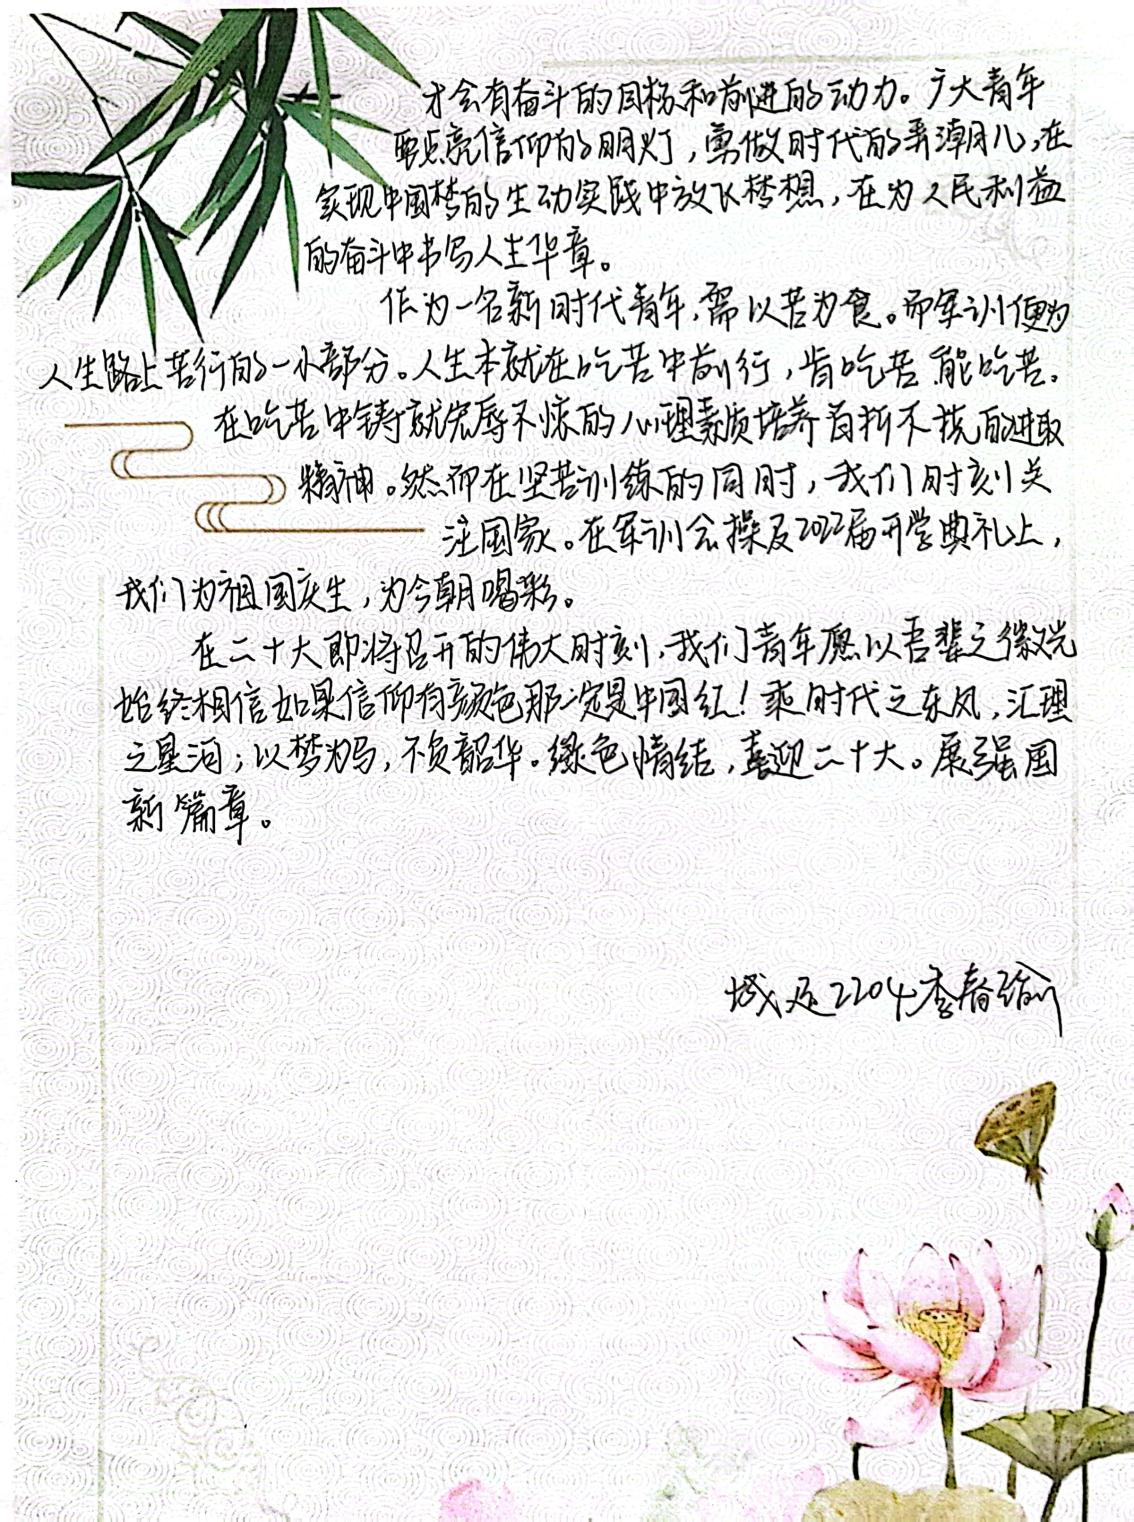 才会有奋斗的目标和前进的动力。广大青年
要点亮信仰的明灯，勇做时代的弄潮儿，在
实现中国梦的生动实践中放飞梦想，在为人民利益
的奋斗中书写人生华章。
作为一名新时代青年，需以苦为食。而军训便为
人生路上苦行的一小部分。人生本就在吃苦中前行，肯吃苦 能吃苦。
在吃苦中铸就宠辱不惊的心理素质培养百折不挠的进取
精神。然而在坚苦训练的同时，我们时刻关
注国家。在军训会操及2022届开学典礼上，
我们为祖国庆生，为今朝喝彩。
在二十大即将召开的伟大时刻，我们青年愿以吾辈之微光
始终相信如果信仰有颜色那一定是中国红！乘时代之东风，汇理
之星河；以梦为马，不负韶华。绿色情结，喜迎二十大。展强国
新篇章。
城运2204李春瑜